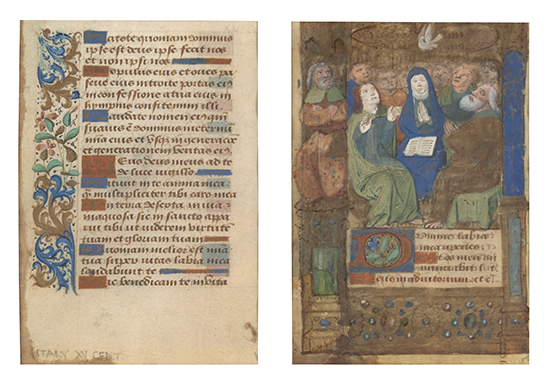 citote quoniam dominus
ipse est deus ipse fecit nos
et non ipsi nos
Populus eius et oues pa
scue eius introite portas ei9
in confessione atria eius in
hympnis confitemini illi
Laudate nomen eius qm
suauis e dominus in eternu
mia eius et vsqz in generacoe
et generationem veritas ei9
Deus deus meus ad te
de luce vigillo
Sitiuit in te anima mea
qm multipliciter tibi caro mea
In terra deserta inuia
inaquosa sic in sancto appa
rui tibi ut uiderem virtute
tuam et gloriam tuam
Quoniam melior est mia
tua super vitas labia mea
laudabunt te
Sic benedicam te in vita
ITALY XV CENT.
Domine labia
mea aperies
Et os meum
annunciabit
Deus in adiutorium